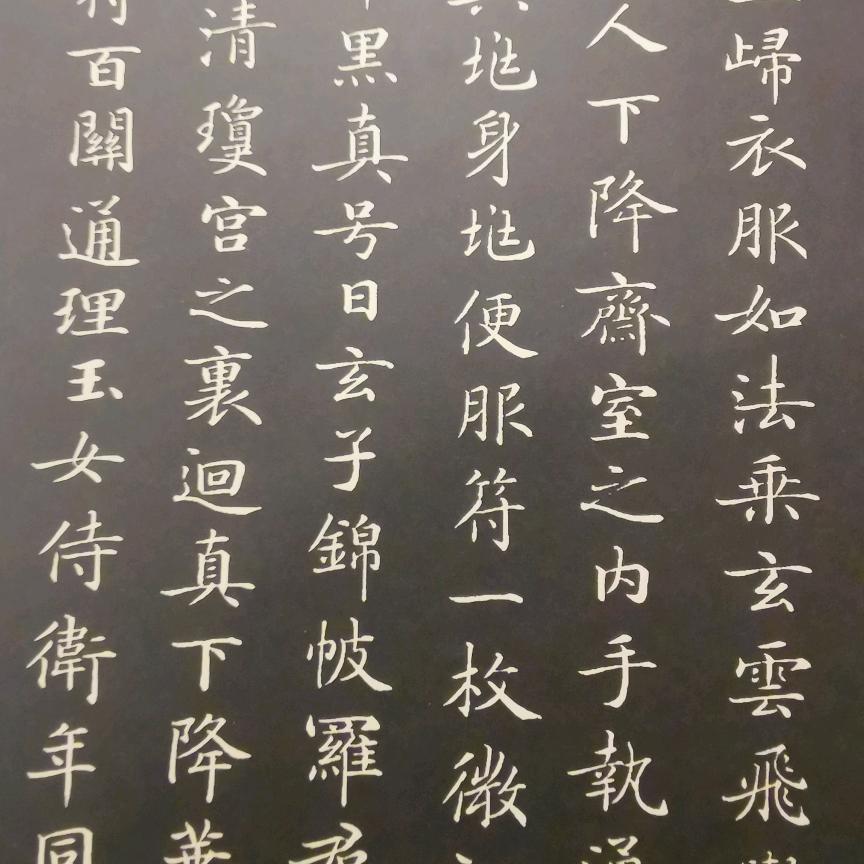 歸衣服如法乘玄雲飛
人下降齋室之内手執通
兆身兆便服符一枚微
黑真号曰玄子錦帔羅君
清瓊宫之裏迴真下降華
百關通理玉女侍衛年同